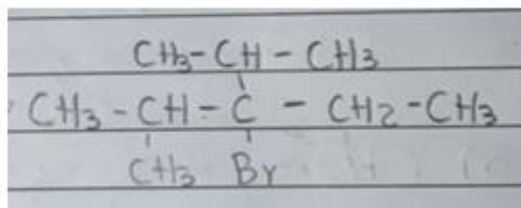 CH3-CH-CH3
CH3-CH-C-CH2-CH3
CH3 Br